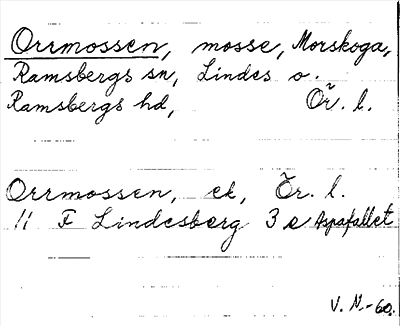 Orrmossen, mosse, Morskoga,
Ramsbergs sn, Lindes o.
Ramsbergs hd, Ör. l.
Orrmossen, ek, Ör. l.
11 F Lindesberg 3 e Aspafallet
V. N.-60.